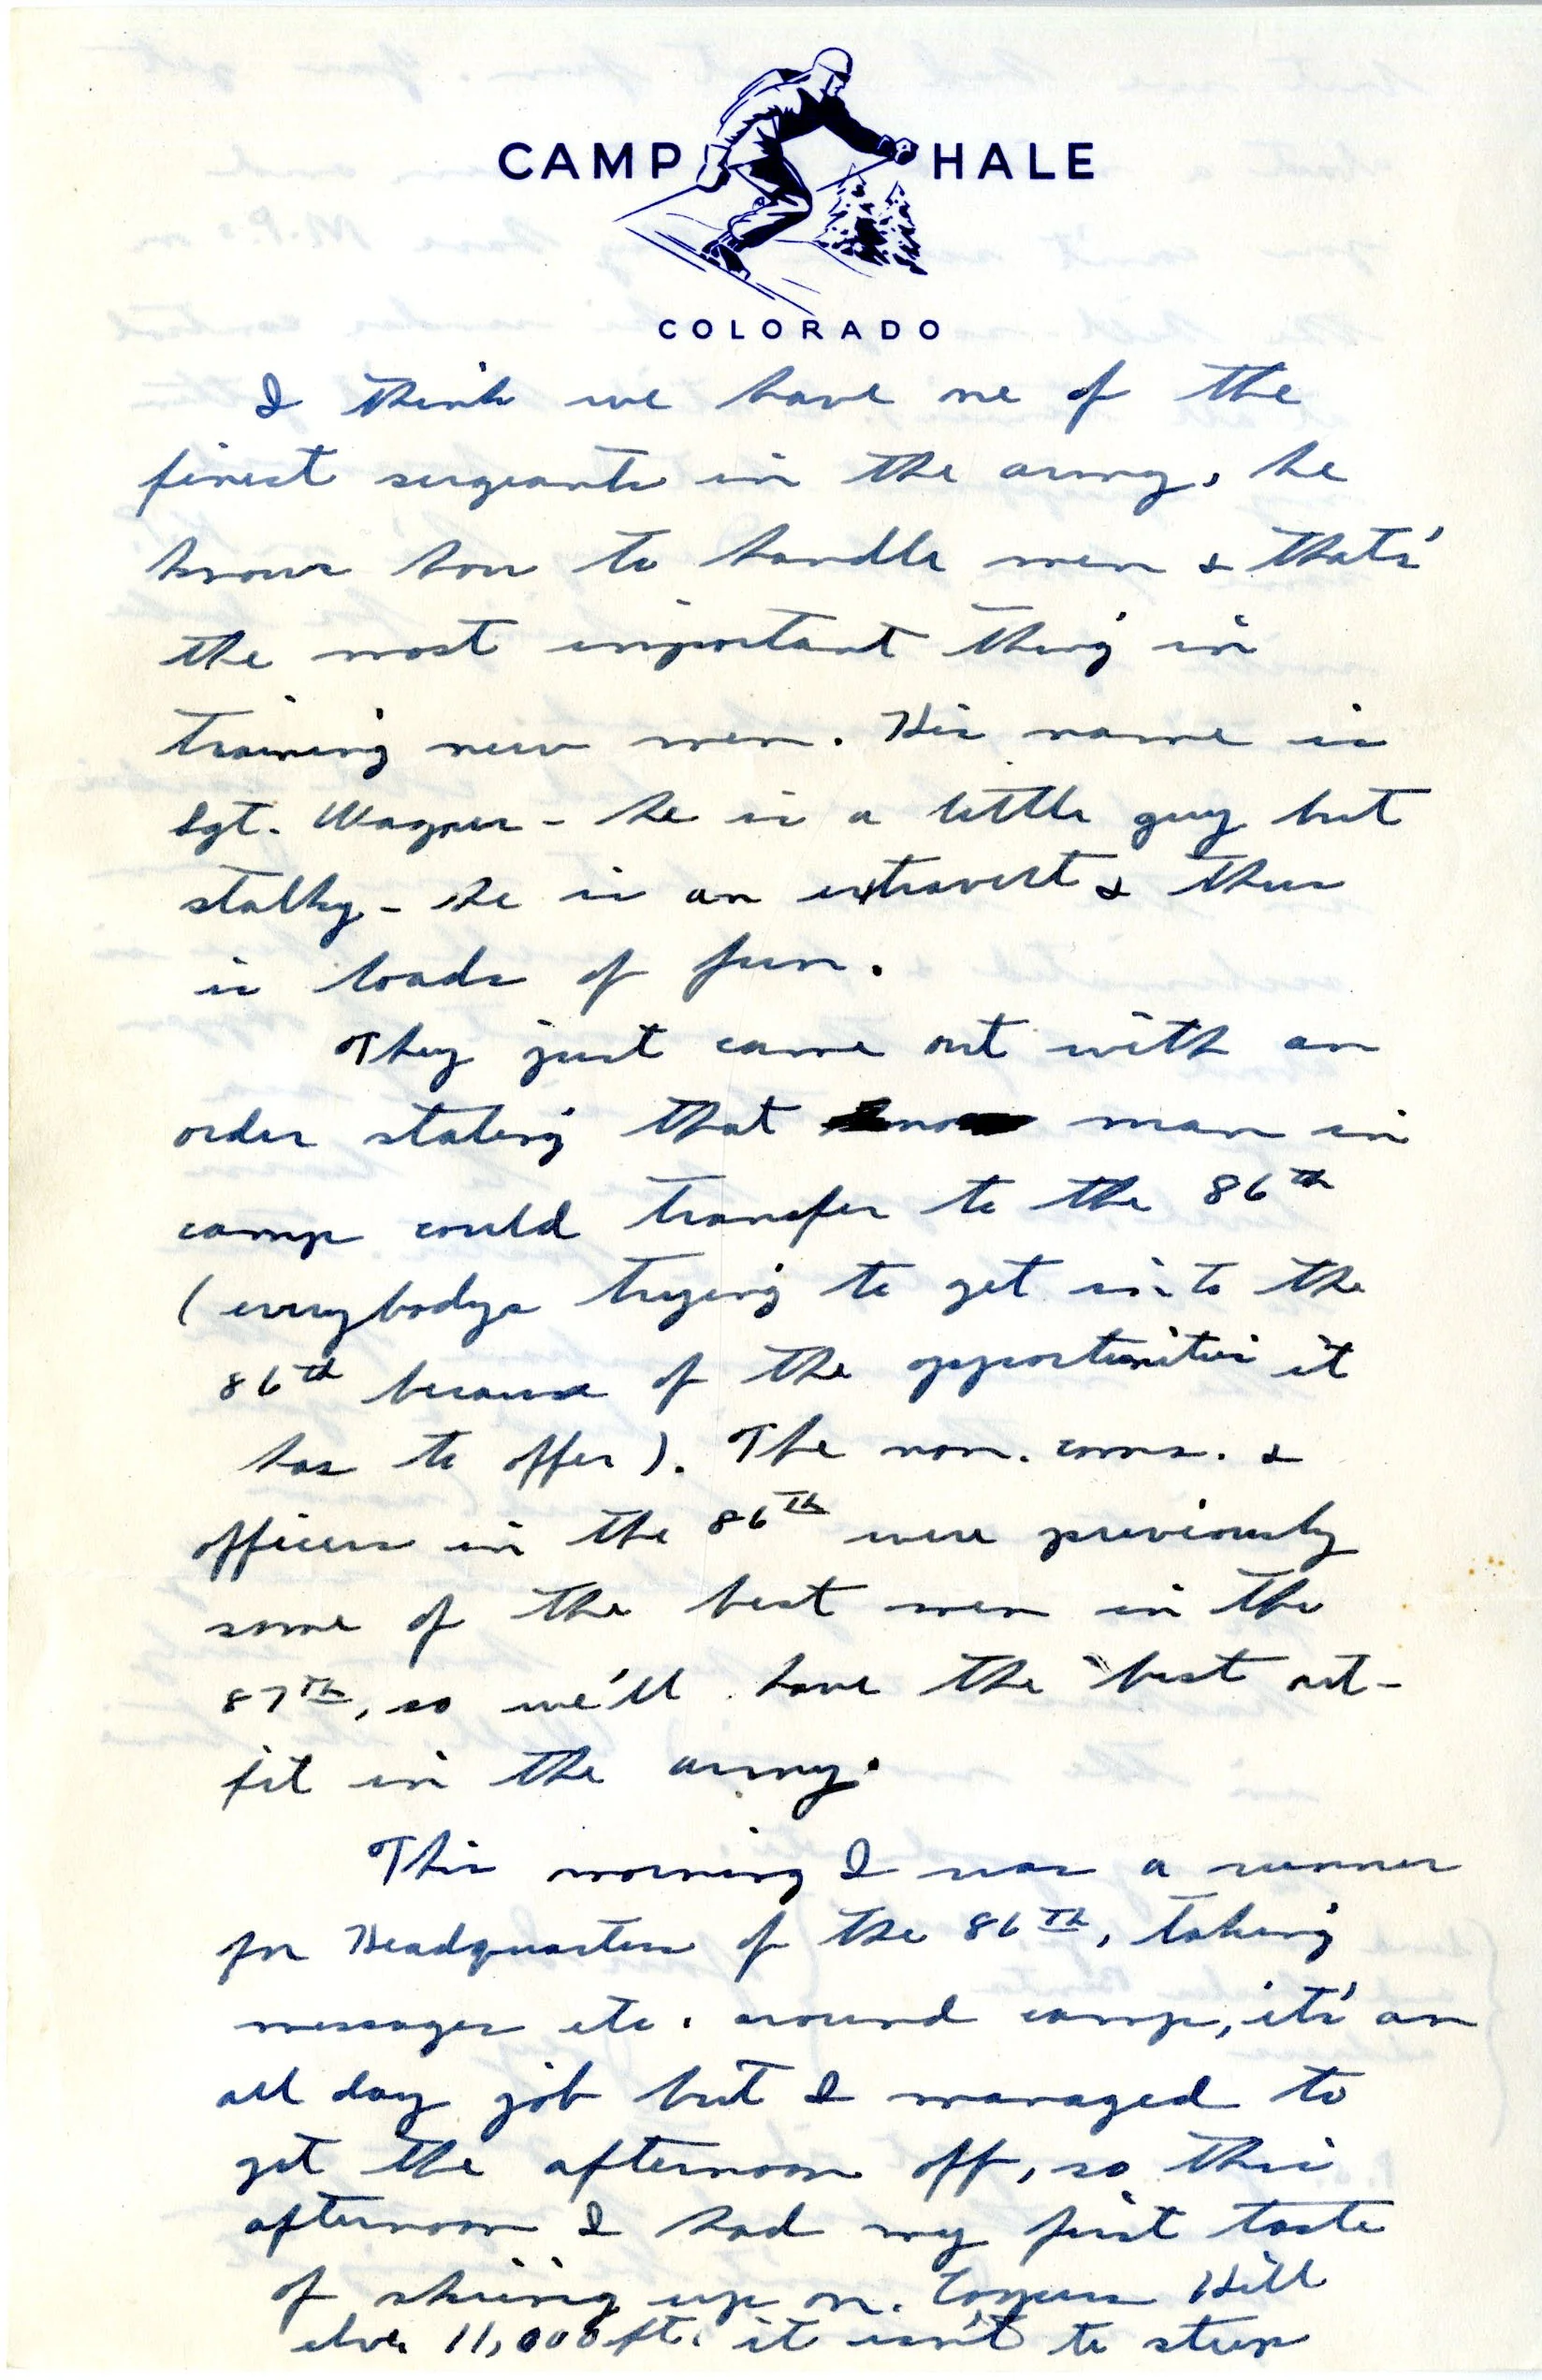 CAMP HALE
COLORADO
I think we have one of the
finest sergeants in the army, he
knows how to handle men & thats'
the most important thing in
training new men. His name is
Sgt. Wagner - he is a little guy but
stalky - he is an extravert & thus
is loads of fun.
They just came out with an
order stating that no man in
camp could transfer to the 86th
(everybodys trying to get into the
86th because of the opportunities it
has to offer). The non. coms. &
officers in the 86th were previously
some of the best men in the
87th, so we'll have the best out-
fit in the army.
This morning I was a runner
for Headquarters of the 86th, taking
messages etc. around camp, its' an
all day job but I managed to
get the afternoon off, so this
afternoon I had my first taste
of skiing up on Coopers Hill
elve. 11,000 ft. it isn't to steep